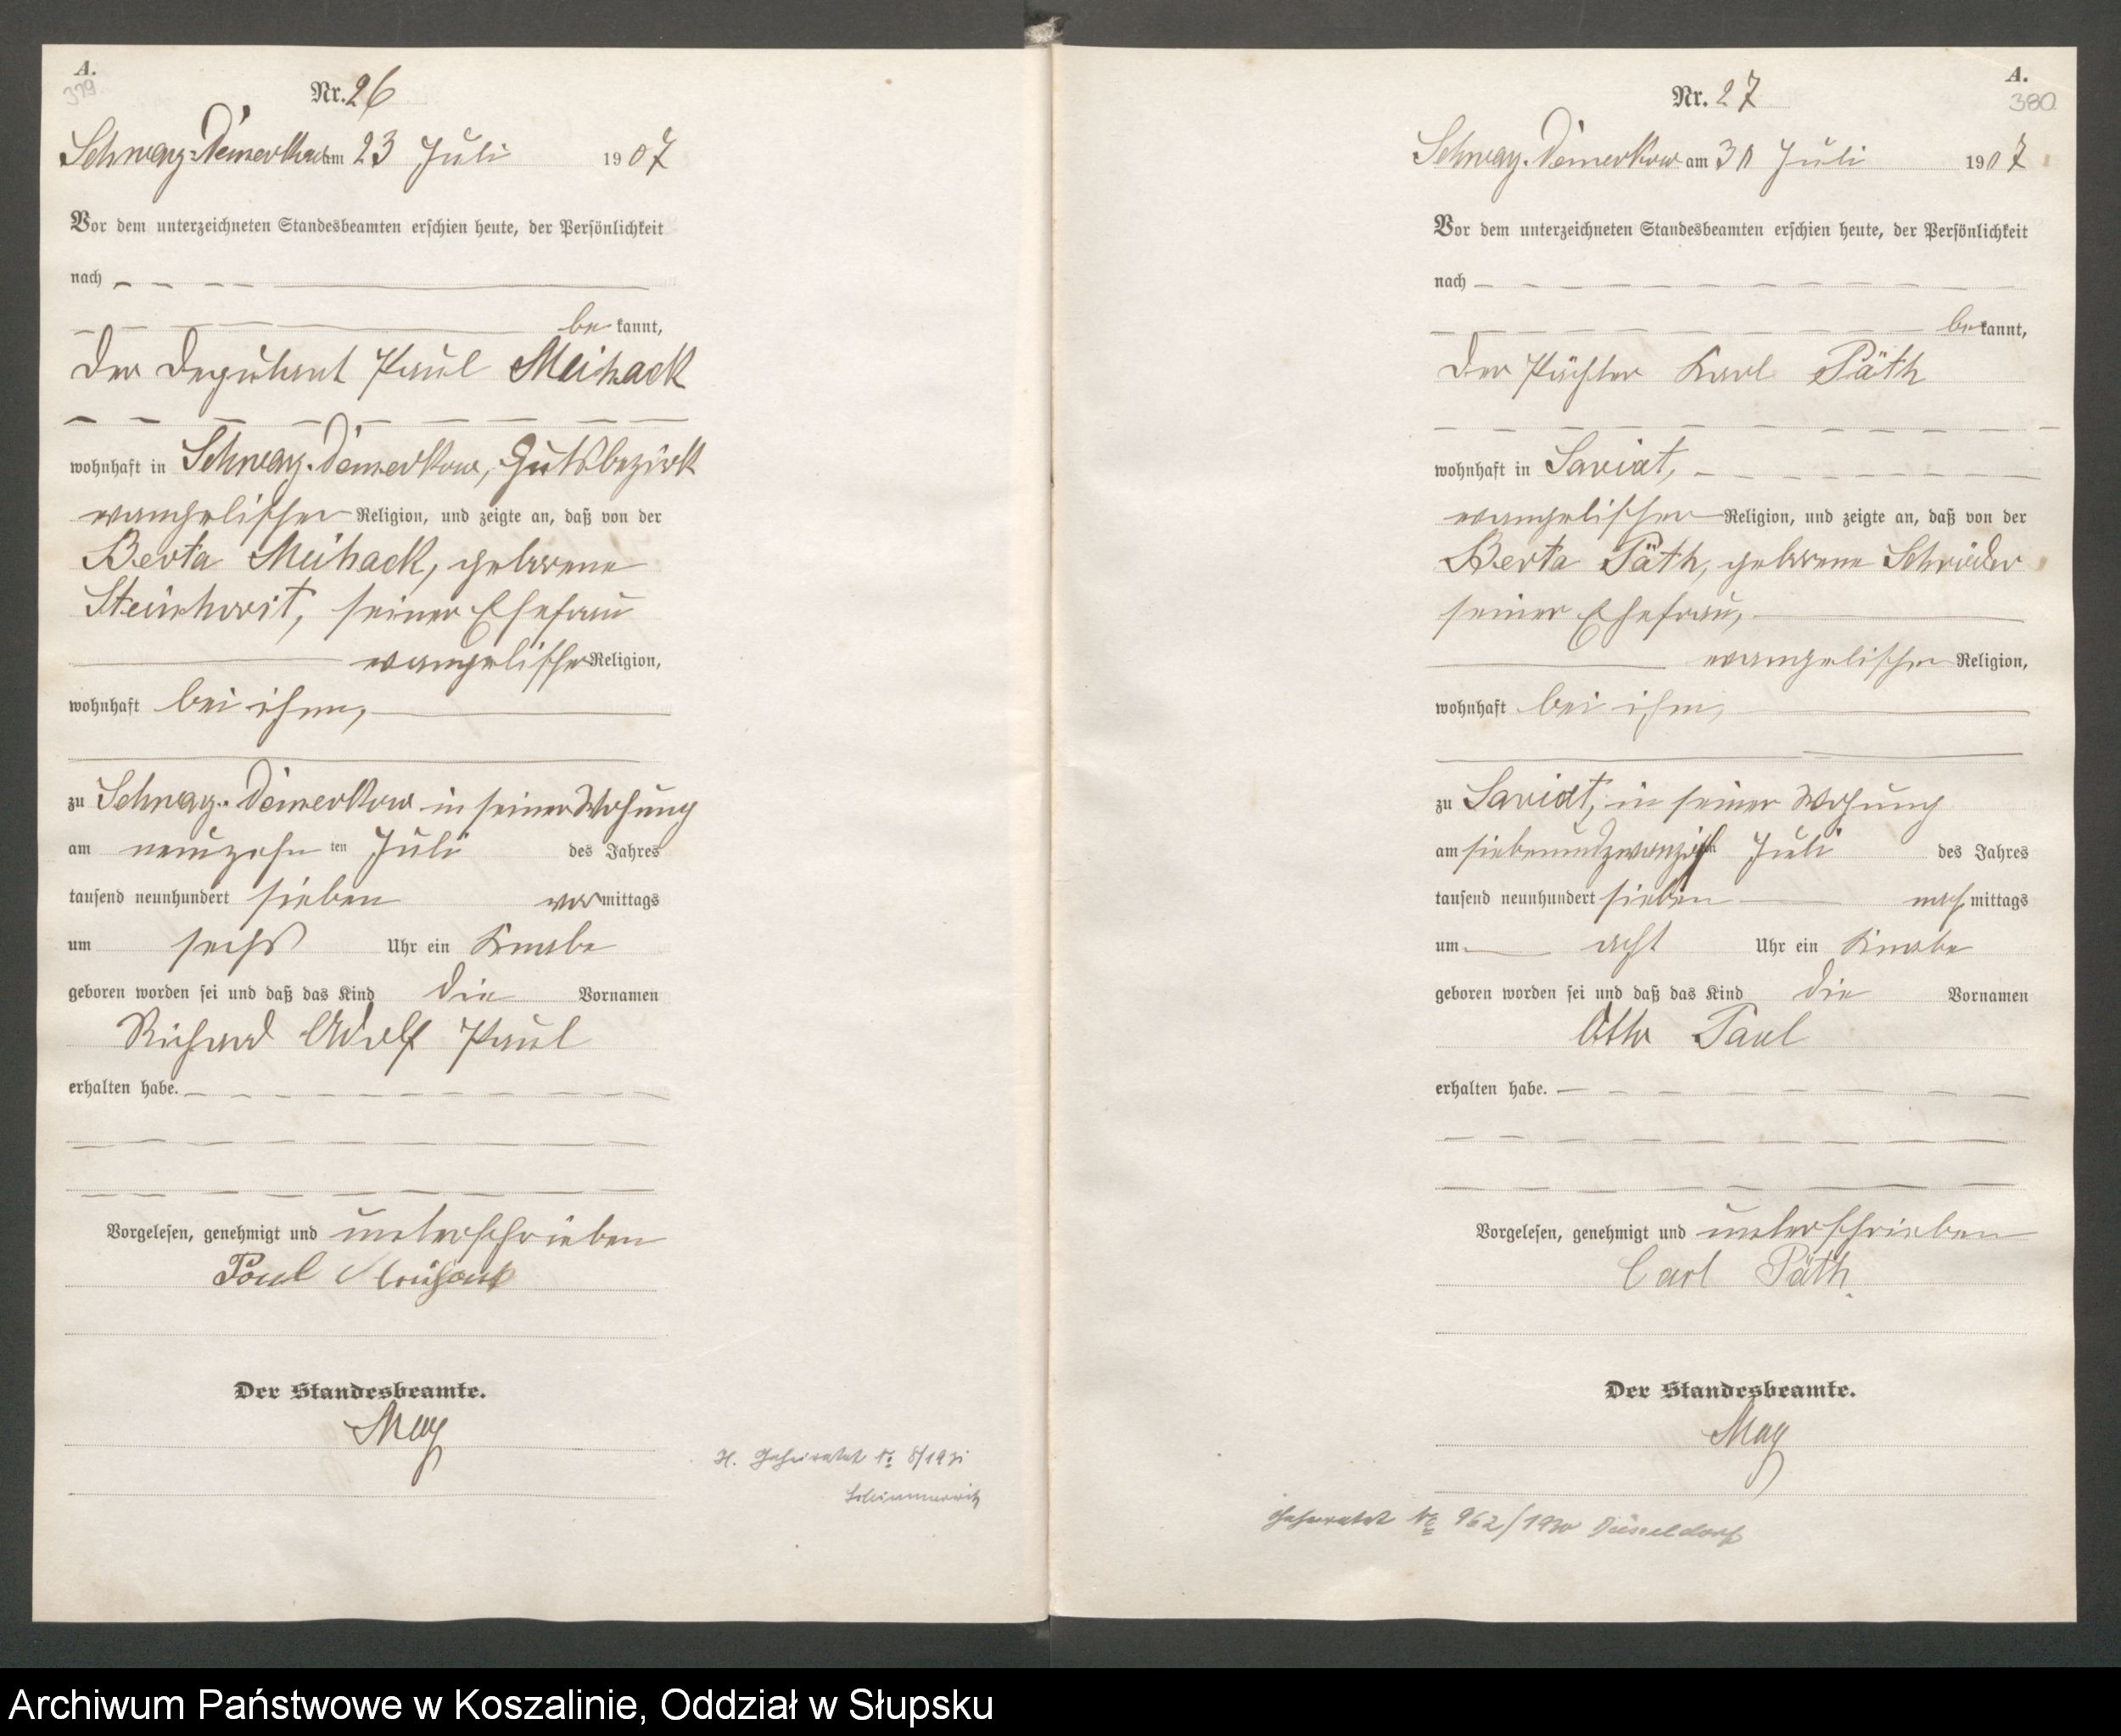 A.
379
Nr. 26
Schwarz-Damerkow am 23 Juli 1907
Vor dem unterzeichneten Standesbeamten erschien heute, der Persönlichkeit
nach
be kannt,
der Deputant Paul Meihack
wohnhaft in Schwarz-Damerkow, Gutsbezirk
evangelischer Religion, und zeigte an, daß von der
Berta Meihack, geborene
Steinhorst, seiner Ehefrau
evangelischer Religion,
wohnhaft bei ihm,
zu Schwarz-Damerkow in seiner Wohung
am neunzehn ten Juli des Jahres
tausend neunhundert sieben vor mittags
um sechs Uhr ein Knabe
geboren worden sei und daß das Kind die Vornamen
Richard Adolf Paul
erhalten habe.
Vorgelesen, genehmigt und unterschrieben
Paul
Der Standesbeamte.
May
H. Geheiratet Nr 8/1931
A.
380
Nr. 27
Schwarz-Damerkow am 30 Juli 1907
Vor dem unterzeichneten Standesbeamten erschien heute, der Persönlichkeit
nach
be kannt,
der Pächter Karl Päth
wohnhaft in Saviat,
evangelischer Religion, und zeigte an, daß von der
Berta Päth, geborene Schröder
seiner Ehefrau,
evangelischer Religion,
wohnhaft bei ihm,
zu Saviat, in seiner Wohung
am siebenundzwanzigsten Juli des Jahres
tausend neunhundert sieben nach mittags
um acht Uhr ein Knabe
geboren worden sei und daß das Kind die Vornamen
Otto Paul
erhalten habe.
Vorgelesen, genehmigt und unterschrieben
Carl Päth.
Der Standesbeamte.
May
Geheiratet Nr 962/1930 Düsseldorf
Archiwum Państwowe w Koszalinie, Oddział w Słupsku